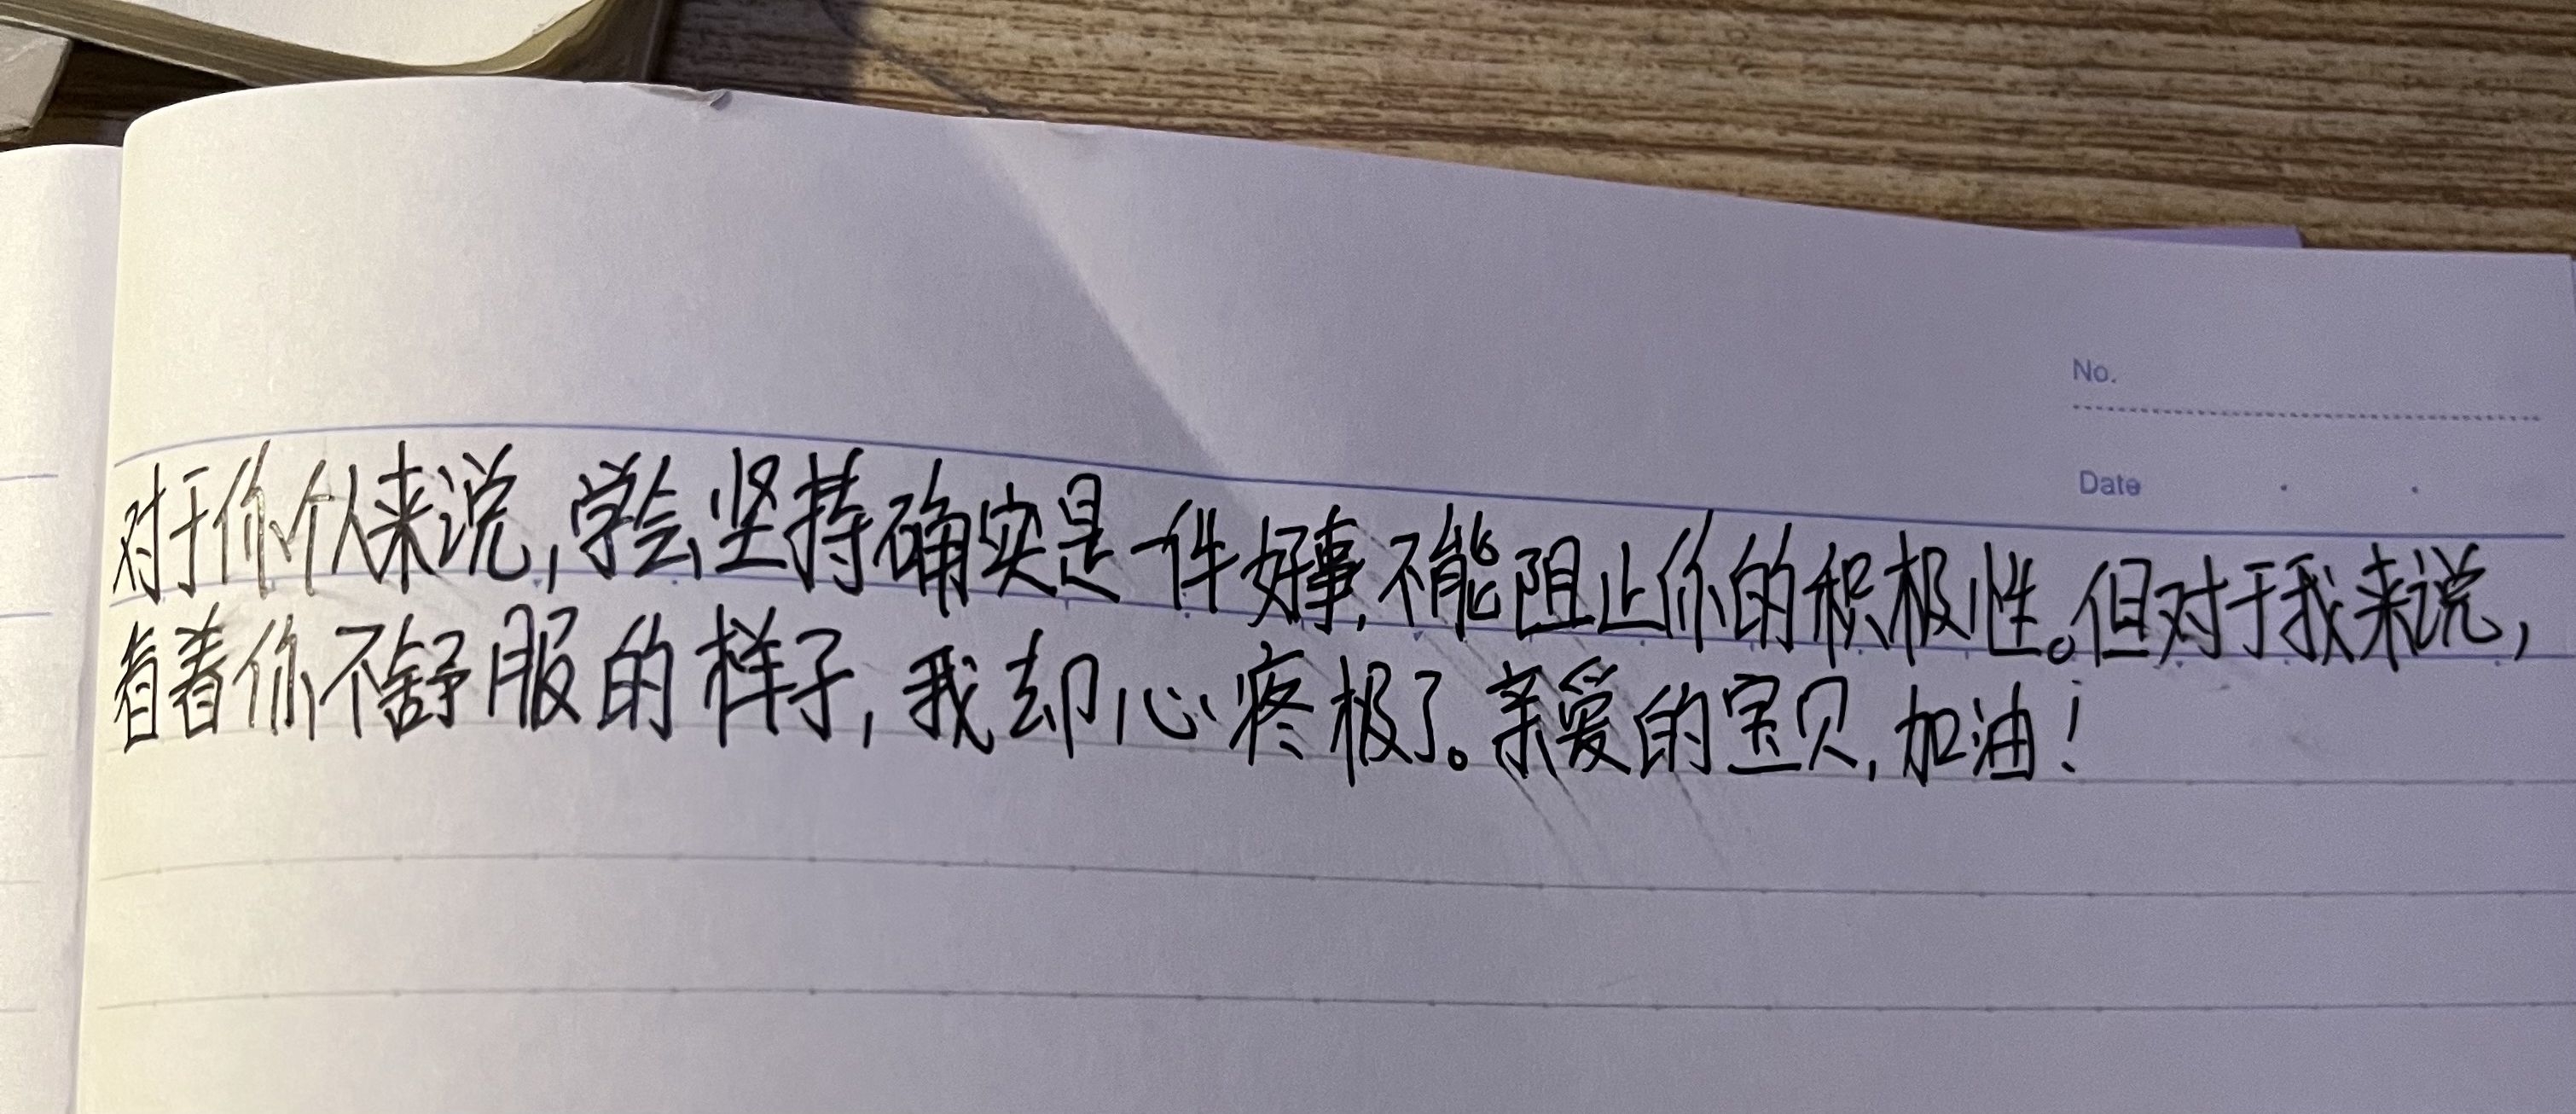 No.
Date
对于你个人来说,学会坚持确实是一件好事,不能阻止你的积极性。但对于我来说,
看着你不舒服的样子,我却心疼极了。亲爱的宝贝,加油!